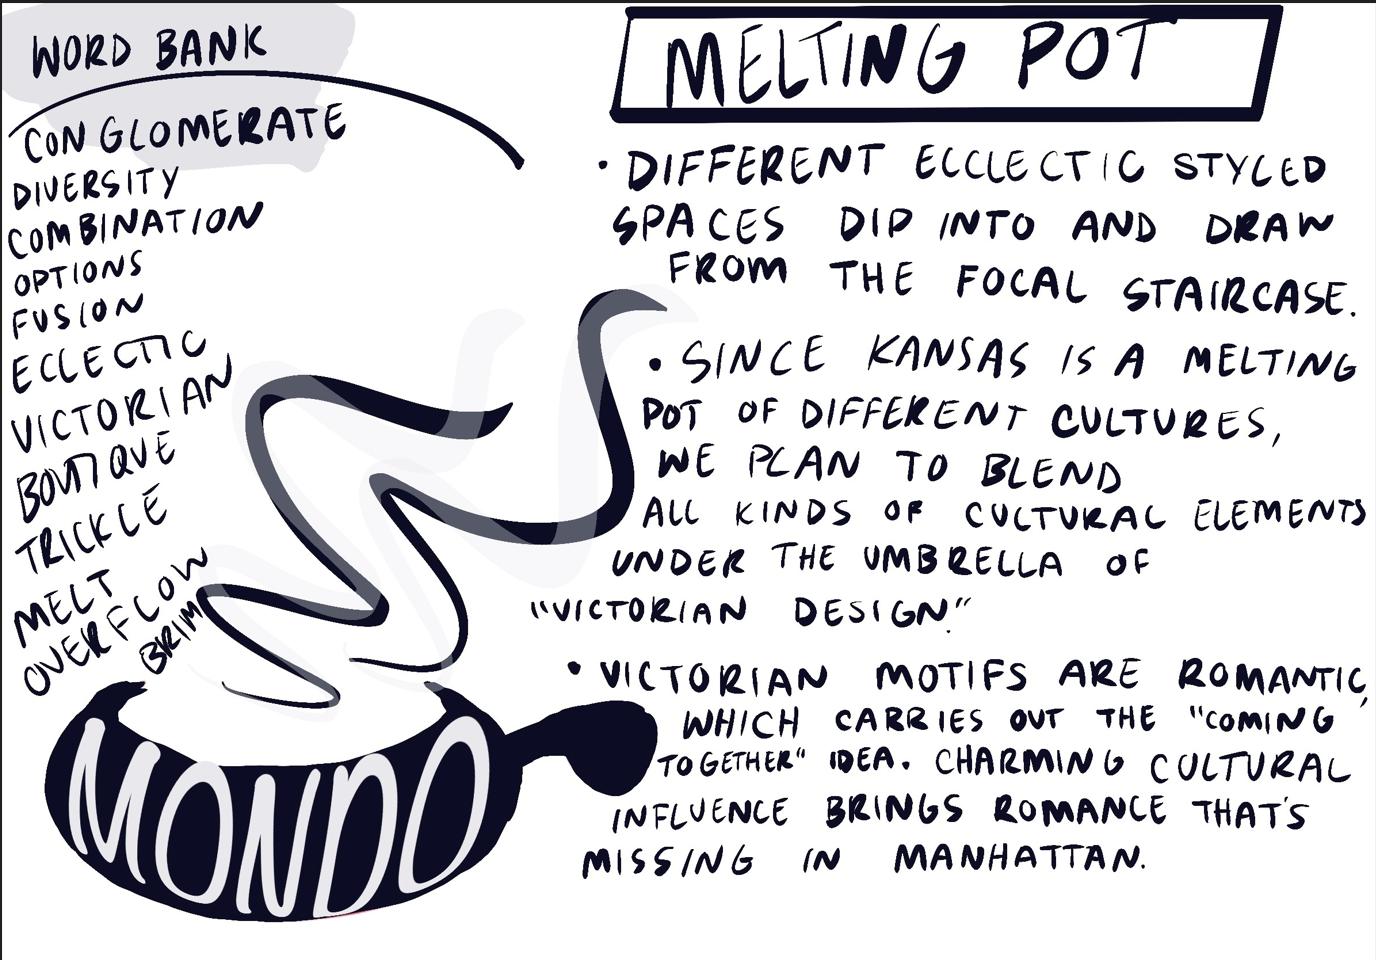 WORD BANK
CONGLOMERATE
DIVERSITY
COMBINATION
OPTIONS
FUSION
ECCLECTIC
VICTORIAN
BOUTIQUE
TRICKLE
MELT
OVERFLOW
BRIM
MONDO
MELTING POT
• DIFFERENT ECCLECTIC STYLED
SPACES DIP INTO AND DRAW
FROM THE FOCAL STAIRCASE.
• SINCE KANSAS IS A MELTING
POT OF DIFFERENT CULTURES,
WE PLAN TO BLEND
ALL KINDS OF CULTURAL ELEMENTS
UNDER THE UMBRELLA OF
"VICTORIAN DESIGN."
• VICTORIAN MOTIFS ARE ROMANTIC,
WHICH CARRIES OUT THE "COMING
TOGETHER" IDEA. CHARMING CULTURAL
INFLUENCE BRINGS ROMANCE THAT'S
MISSING IN MANHATTAN.